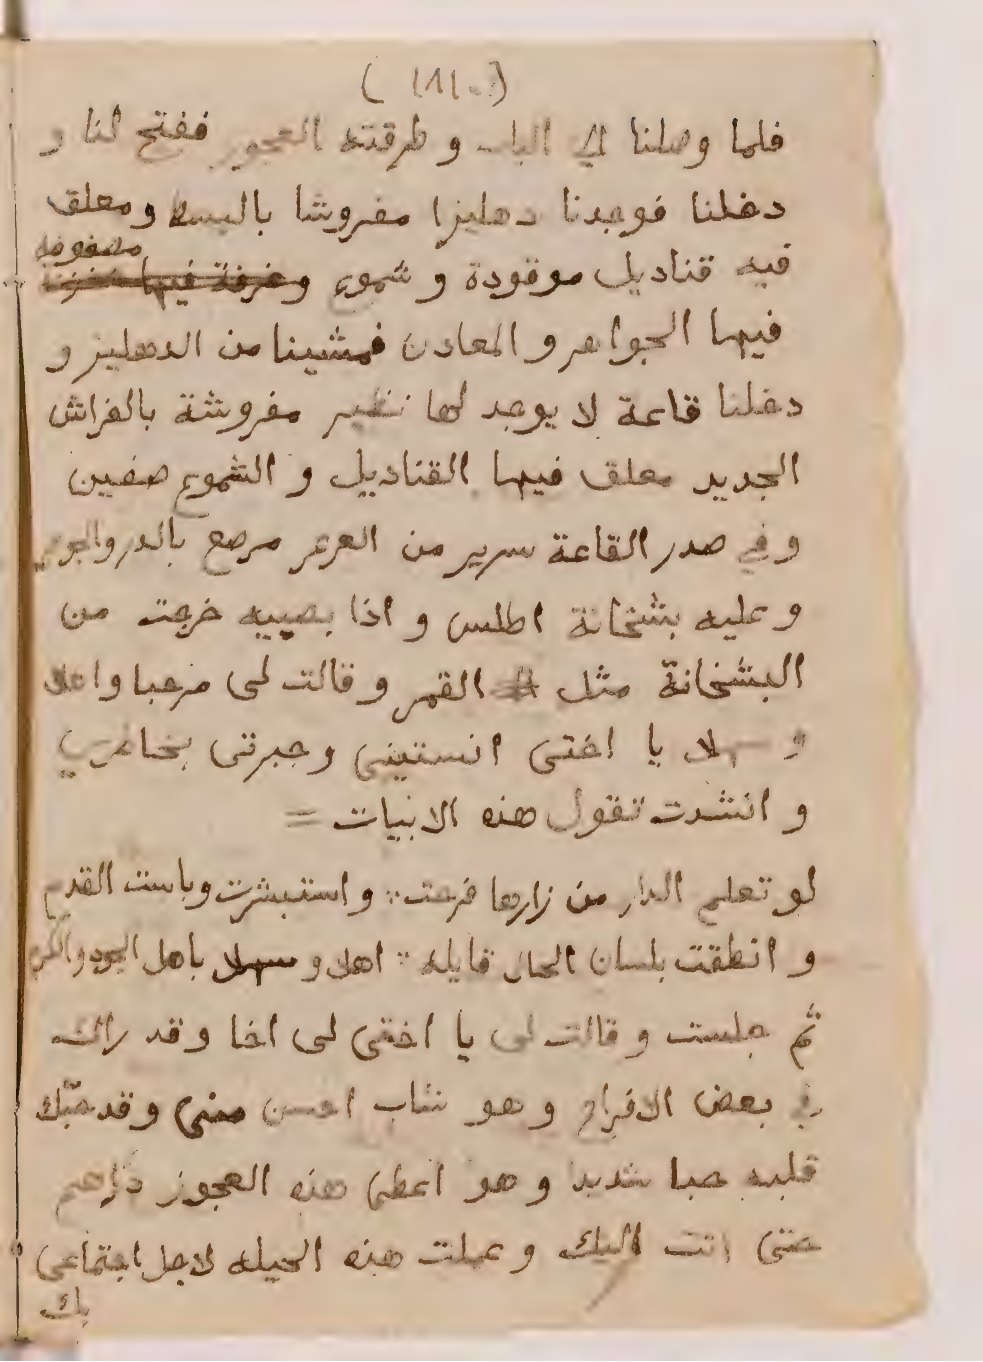 فلما وصلنا الى الباب و طرقته العجوز ففتح لنا و
دخلنا فوجدنا دهليزا مفروشا بالبسط ومعلق
فيه قناديل موقودة و شموع وغرفة فيها مصفوفه
فيها الجواهر و المعادن فمشينا من الدهليز و
دخلنا قاعة لا يوجد لها نظير مفروشة بالفراش
الجديد معلق فيها القناديل و الشموع صفين
و في صدر القاعة سرير من العرعر مرصع بالدر والجوهر
و عليه بشخانة اطلس و اذا بصبيه خرجت من
البشخانة مثل القمر و قالت لى مرحبا واهلا
و سهلا يا اختى انستينى وجبرتى بخاطري
و انشدت تقول هذه الابيات =
لو تعلم الدار من زارها فرحت ∴ و استبشرت وباست القدم
و انطقت بلسان الحال قايله ∴ اهلا و سهلا باهل الجود والكرم
ثم جلست و قالت لى يا اختى لى اخا و قد راك
في بعض الافراح و هو شاب احسن منى و قد حبّك
قلبه حبا شديدا و هو اعطى هذه العجوز دراهم
حتى اتت اليك و عملت هذه الحيله لاجل اجتماعى
بك